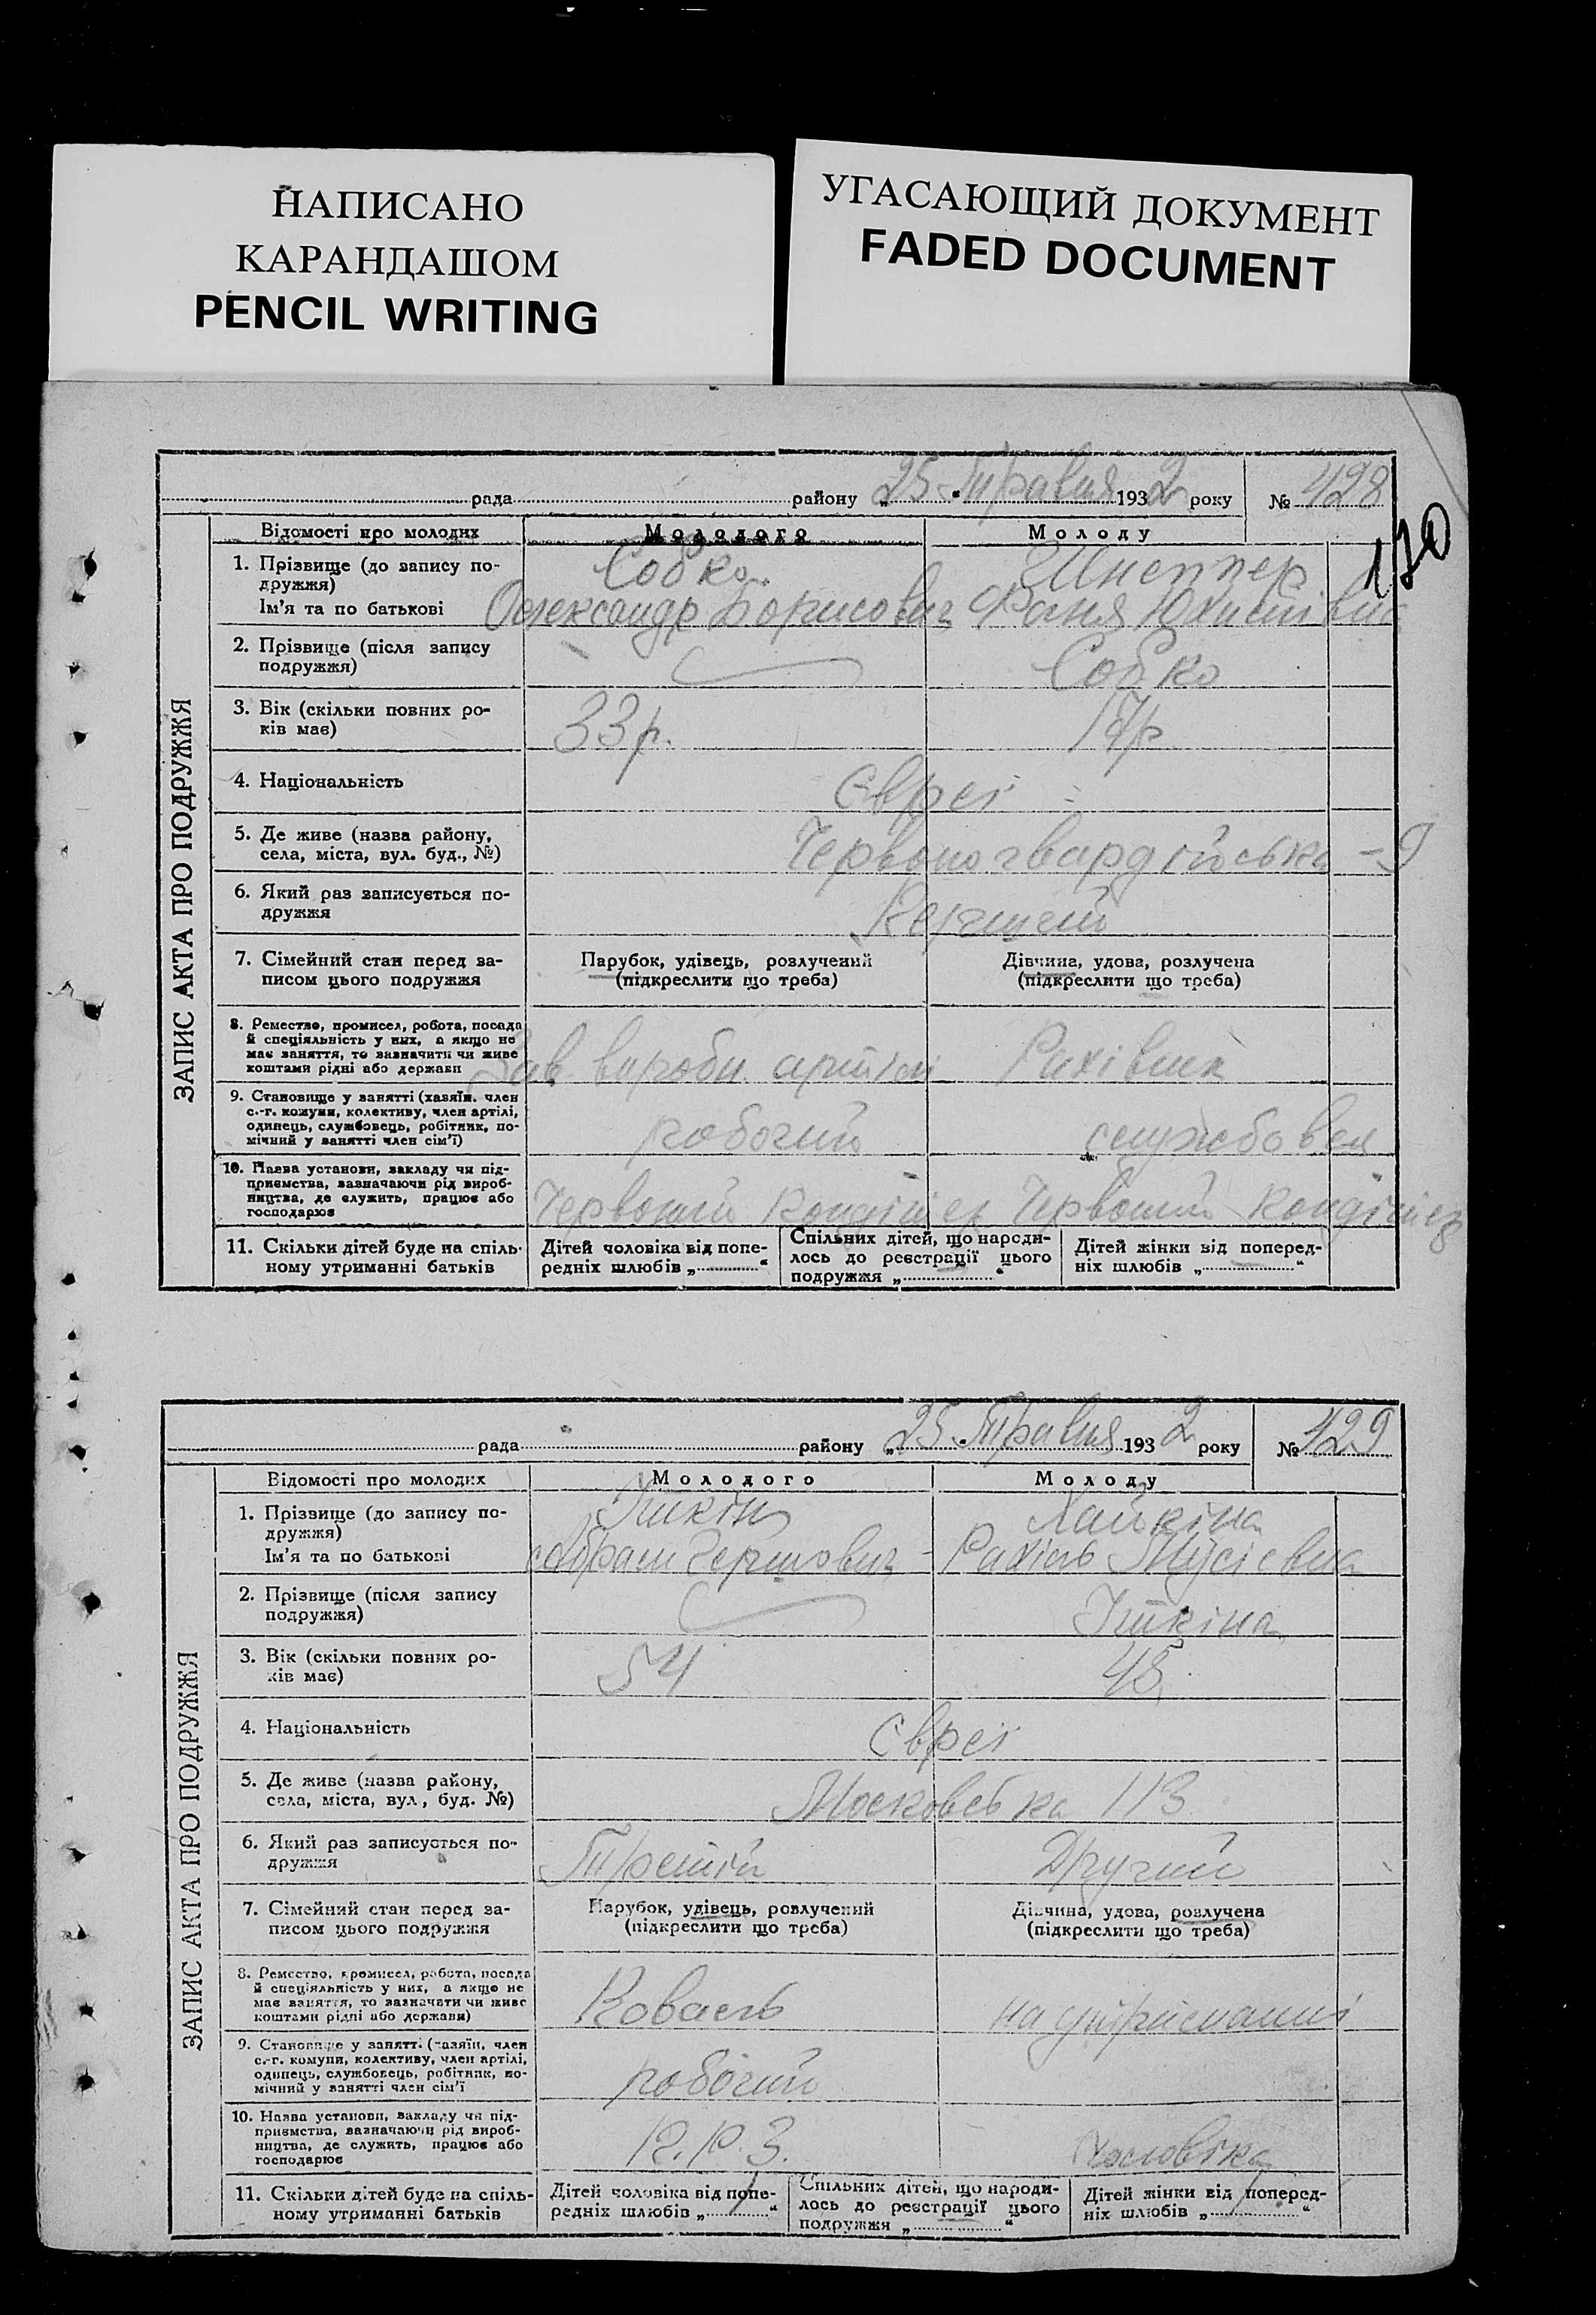 НАПИСАНО
КАРАНДАШОМ
PENCIL WRITING
УГАСАЮЩИЙ ДОКУМЕНТ
FADED DOCUMENT
рада району „25“ Травня 1932 року № 428
130
ЗАПИС АКТА ПРО ПОДРУЖЖЯ
Відомості про молодих Молодого Молоду
1. Прізвище (до запису по-
дружжя)
Собко
Ім'я та по батькові
Олександр Борисович Фаня
2. Прізвище (після запису
подружжя)
Собко
3. Вік (скільки повних ро-
ків має)
33 р.
4. Національність
Євреї
5. Де живе (назва району,
села, міста, вул. буд., №)
Червоногвардійська - 9
6. Який раз записується по-
дружжя
7. Сімейний стан перед за-
писом цього подружжя
Парубок, удівець, розлучений
(підкреслити що треба)
Дівчина, удова, розлучена
(підкреслити що треба)
8. Ремество, промисел, робота, посада
й спеціяльність у них, а якщо не
має заняття, то зазначити чи живе
коштами рідні або держави
Зав. вироби. артіли Рахівник
9. Становище у занятті (хазяїн, член
с.-г. комуни, колективу, член артілі,
одинець, службовець, робітник, по-
мічний у занятті член сім'ї)
робочий службовец
10. Назва установи, закладу чи під-
приємства, зазначаючи рід вироб-
ництва, де служить, працює або
господарює
Червоний Кондітер Червоний Кондітер
11. Скільки дітей буде на спіль-
ному утриманні батьків
Дітей чоловіка від попе-
редніх шлюбів „ “
Спільних дітей, що народи-
лось до реєстрації цього
подружжя „ “
Дітей жінки від поперед-
ніх шлюбів „ “
рада району „25 Травня 1932 року № 429
ЗАПИС АКТА ПРО ПОДРУЖЖЯ
Відомості про молодих Молодого Молоду
1. Прізвище (до запису по-
дружжя)
Іткін Хайкіна
Ім'я та по батькові
Абрам Гершович - Рахіль Мусієвна
2. Прізвище (після запису
подружжя)
Іткіна
3. Вік (скільки повних ро-
ків має)
54 48
4. Національність
Євреї
5. Де живе (назва району,
села, міста, вул., буд. №)
Московська 113
6. Який раз записується по-
дружжя
Третій Другий
7. Сімейний стан перед за-
писом цього подружжя
Парубок, удівець, розлучений
(підкреслити що треба)
Дівчина, удова, розлучена
(підкреслити що треба)
8. Ремество, промисел, робота, посада
й спеціяльність у них, а якщо не
має заняття, то зазначити чи живе
коштами рідні або держави)
Коваль на утриманні
9. Становище у занятт. (хазяїн, член
с.-г. комуни, колективу, член артілі,
одинець, службовець, робітник, по-
мічний у занятті член сім'ї
робочий
10. Назва установи, закладу чи під-
приємства, зазначаючи рід вироб-
ництва, де служить, працює або
господарює
К.Р.З. Чоловіка
11. Скільки дітей буде на спіль-
ному утриманні батьків
Дітей чоловіка від попе-
редніх шлюбів „ “
Спільних дітей, що народи-
лось до реєстрації цього
подружжя „ “
Дітей жінки від поперед-
ніх шлюбів „ “